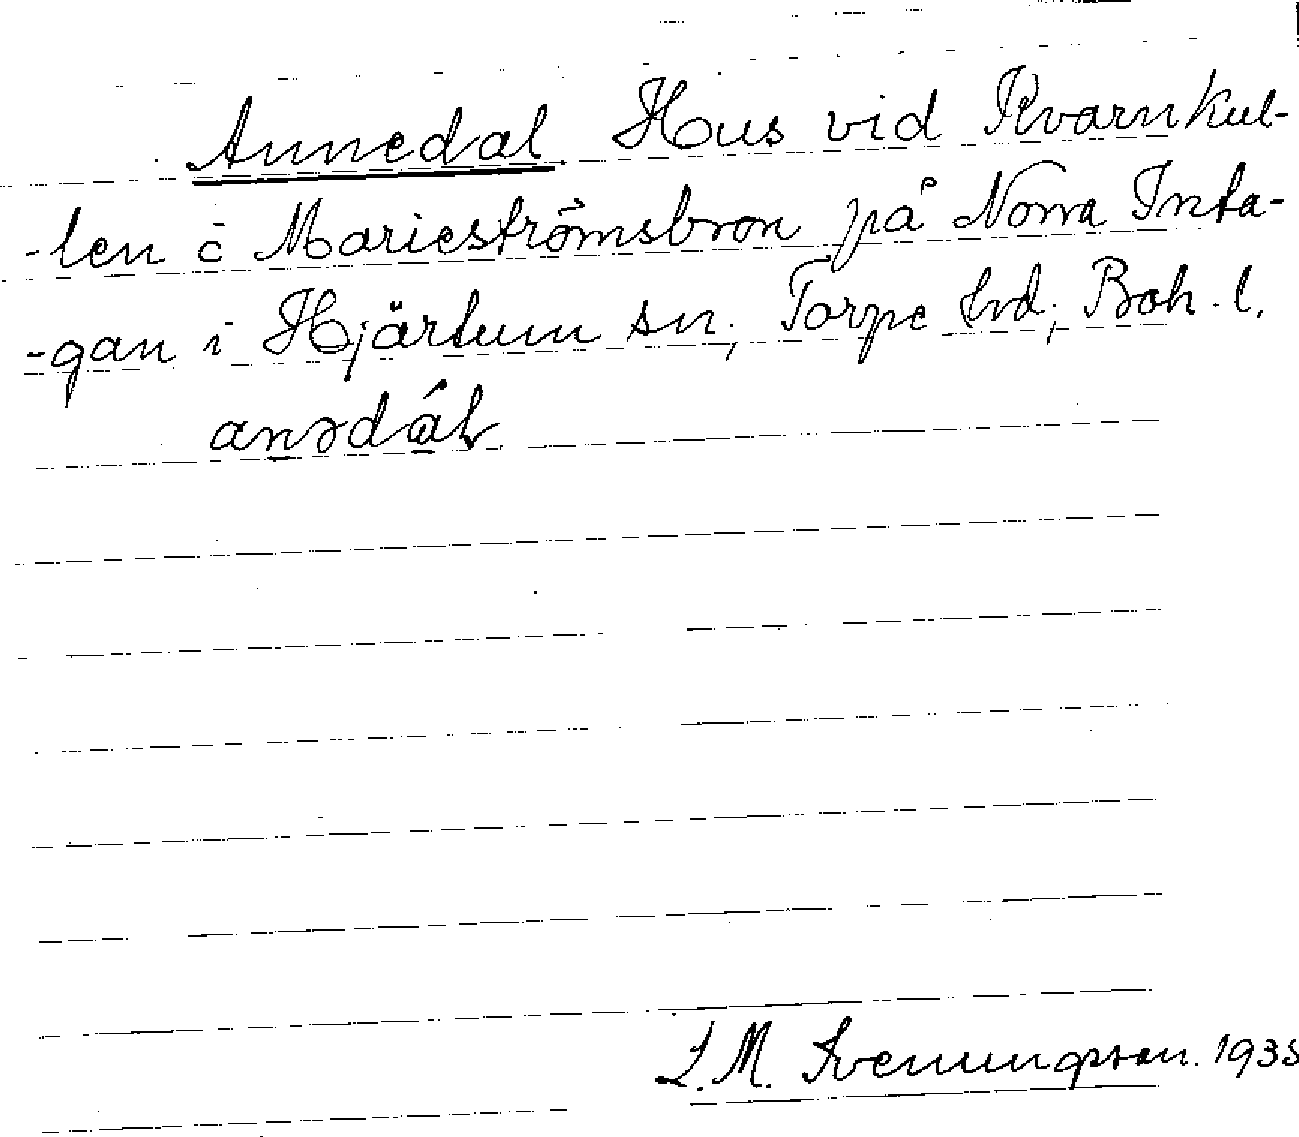 Annedal. Hus vid Kvarnkul-
-len o Marieströmsbron på Norra Inta-
-gan i Hjärtum sn; Torpe hd; Boh. l.
anədál.
L. M. Svenungsson. 1935